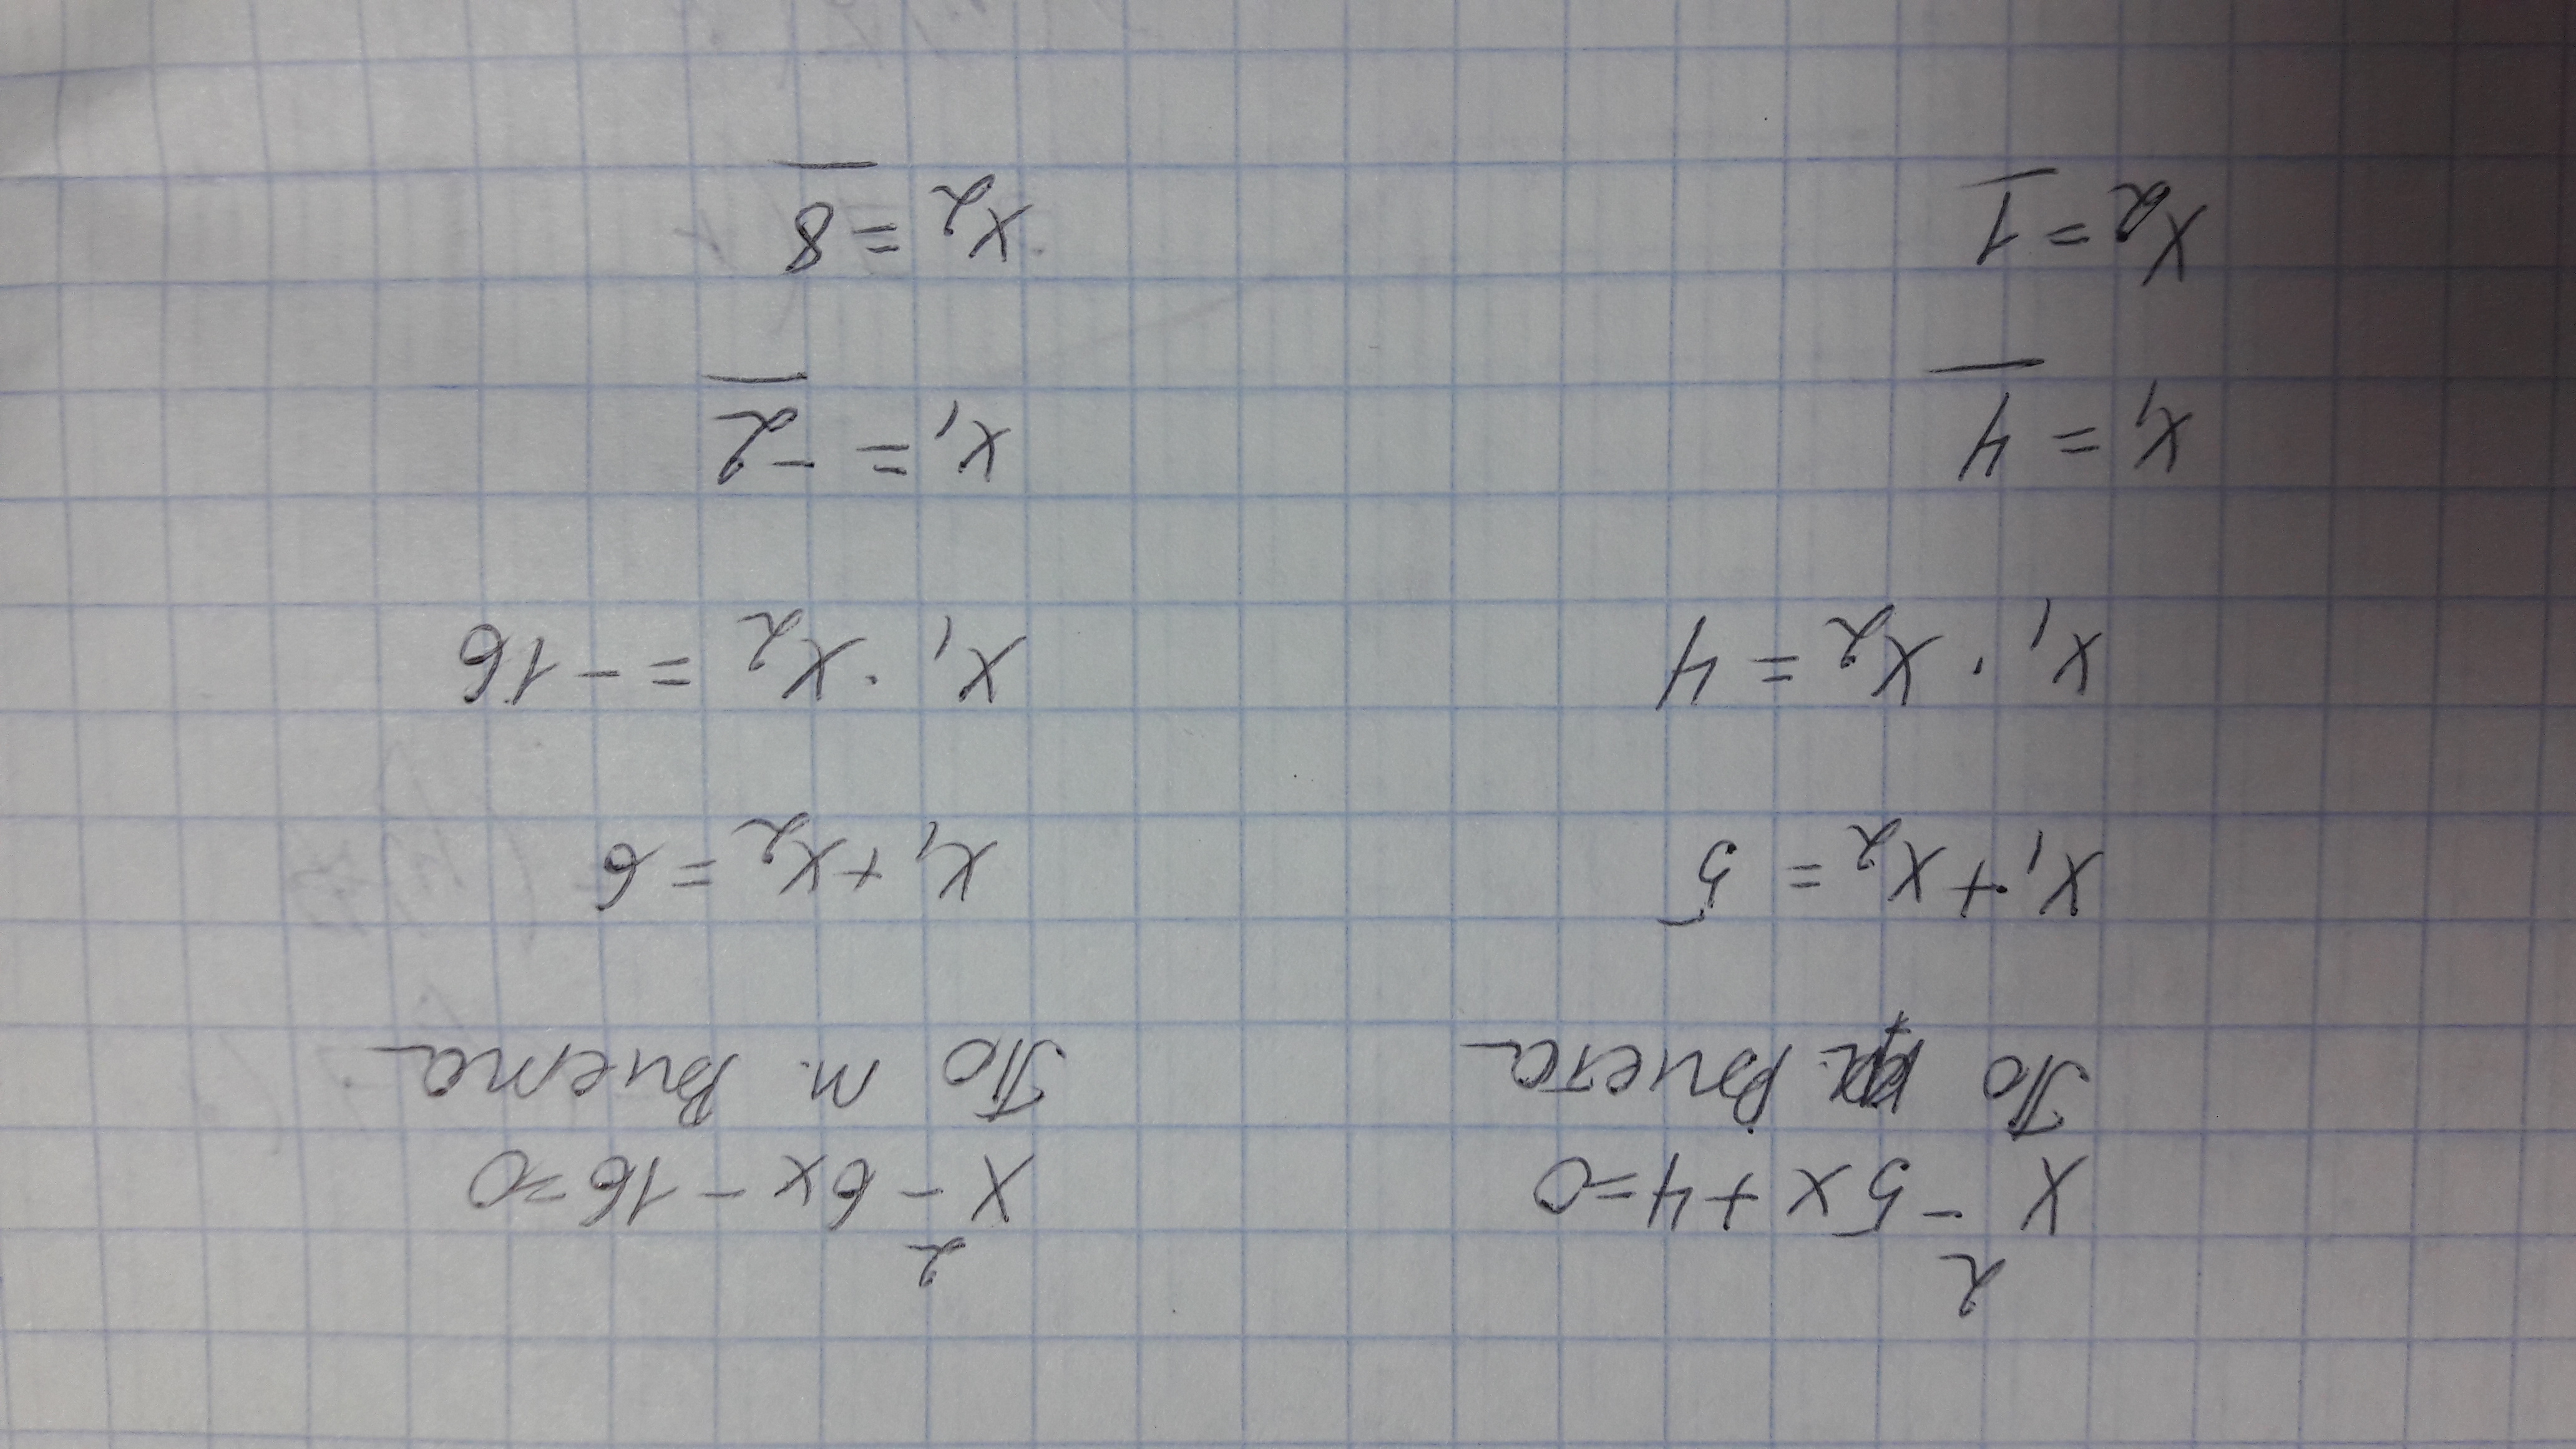 x² - 5x + 4=0
По т. Виета
x₁ + x₂ = 5
x₁ · x₂ = 4
x₁ = 4
x₂ = 1
x² - 6x - 16=0
По т. Виета
x₁ + x₂ = 6
x₁ · x₂ = - 16
x₁ = - 2
x₂ = 8